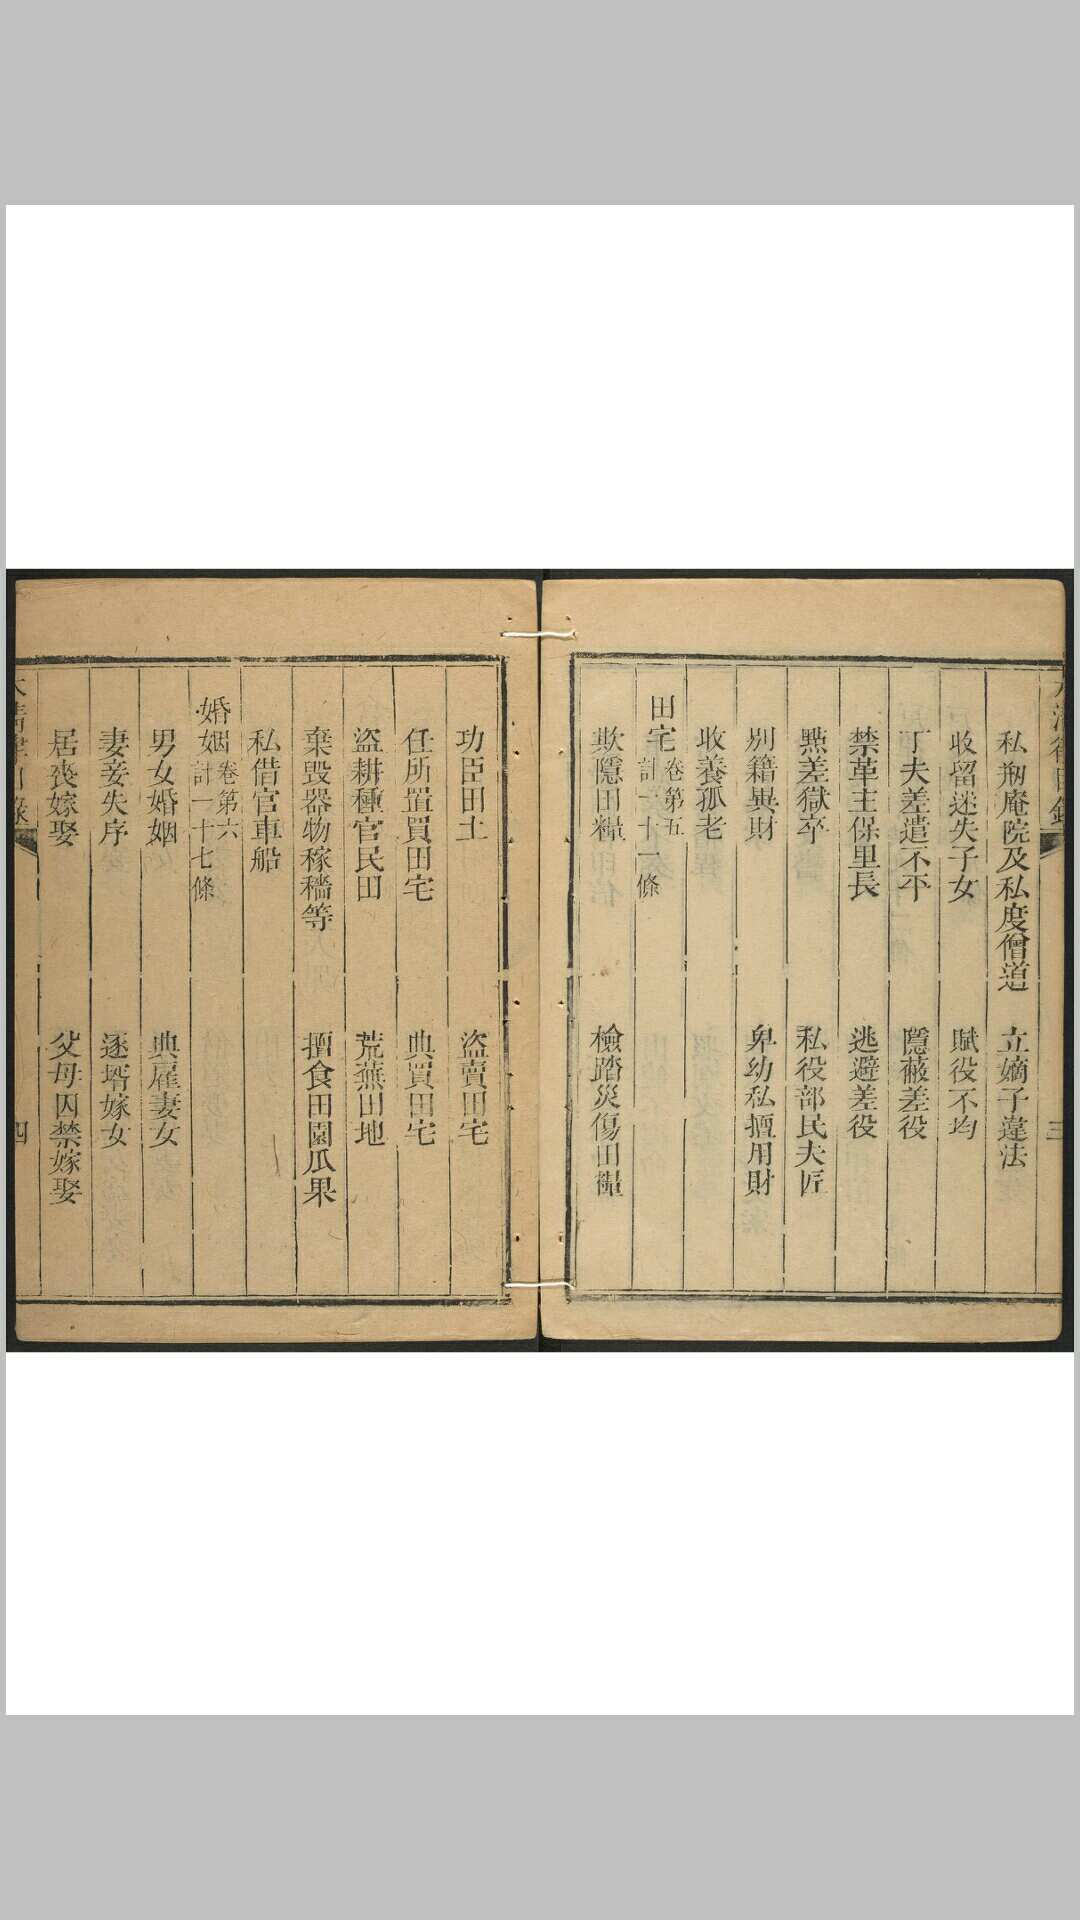 大清律目錄
三
私刱庵院及私度僧道
立嫡子違法
收留迷失子女
賦役不均
丁夫差遣不平
隱蔽差役
禁革主保里長
逃避差役
點差獄卒
私役部民夫匠
別籍異財
卑幼私擅用財
收養孤老
田宅 卷第五 計一十一條
欺隱田糧
檢踏災傷田糧
功臣田土
盜賣田宅
任所置買田宅
典買田宅
盜耕種官民田
荒蕪田地
棄毀器物稼穡等
擅食田園瓜果
私借官車船
婚姻 卷第六 計一十七條
男女婚姻
典雇妻女
妻妾失序
逐壻嫁女
居喪嫁娶
父母囚禁嫁娶
大清律目錄
四